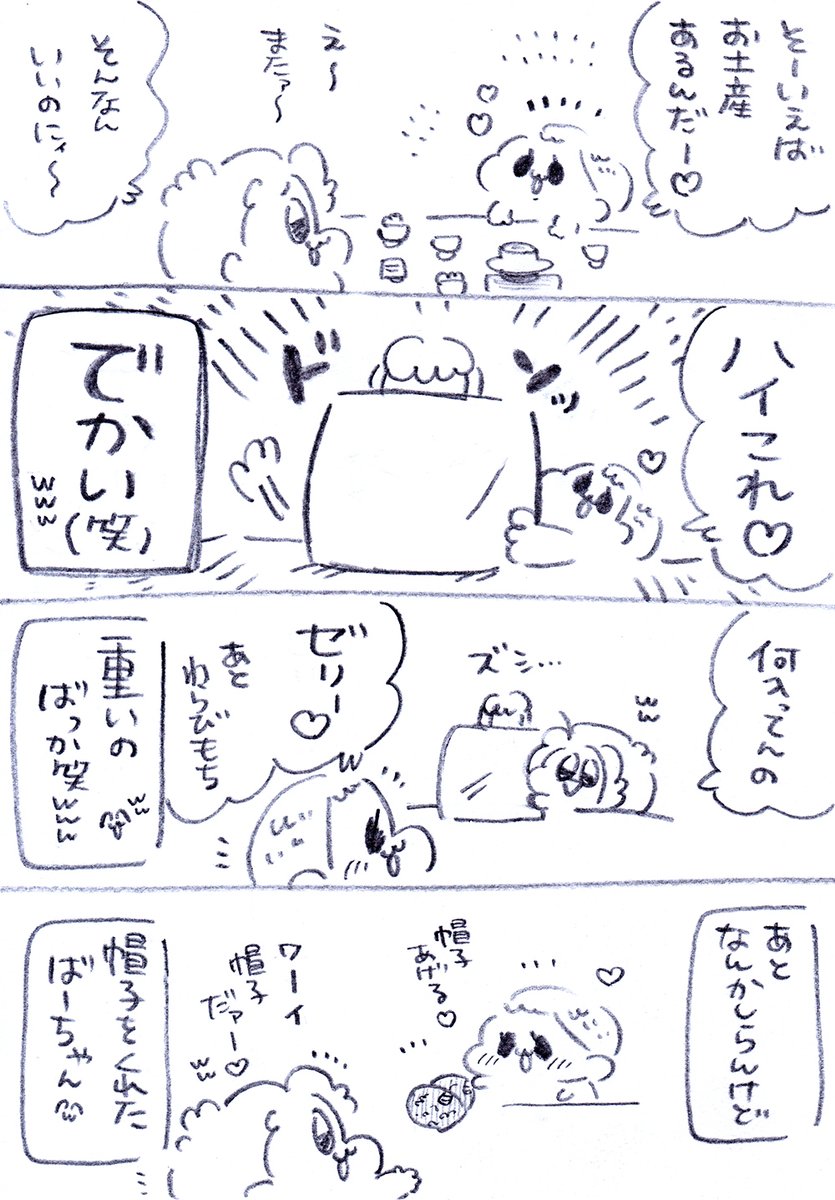 そーいえば
お土産
あるんだー♡
え〜
またァ〜
そんなん
いいのにィ〜
ハイこれ♡
ドンッ
でかい(笑)
www
何入ってんの
ww
ズシ…
ゼリー♡
あと
わらびもち
重いの
ばっか笑www
ww
あと
なんかしらんけど
帽子
あげる♡
ワーイ
帽子
だァー♡
ww
帽子をくれた
ばーちゃん